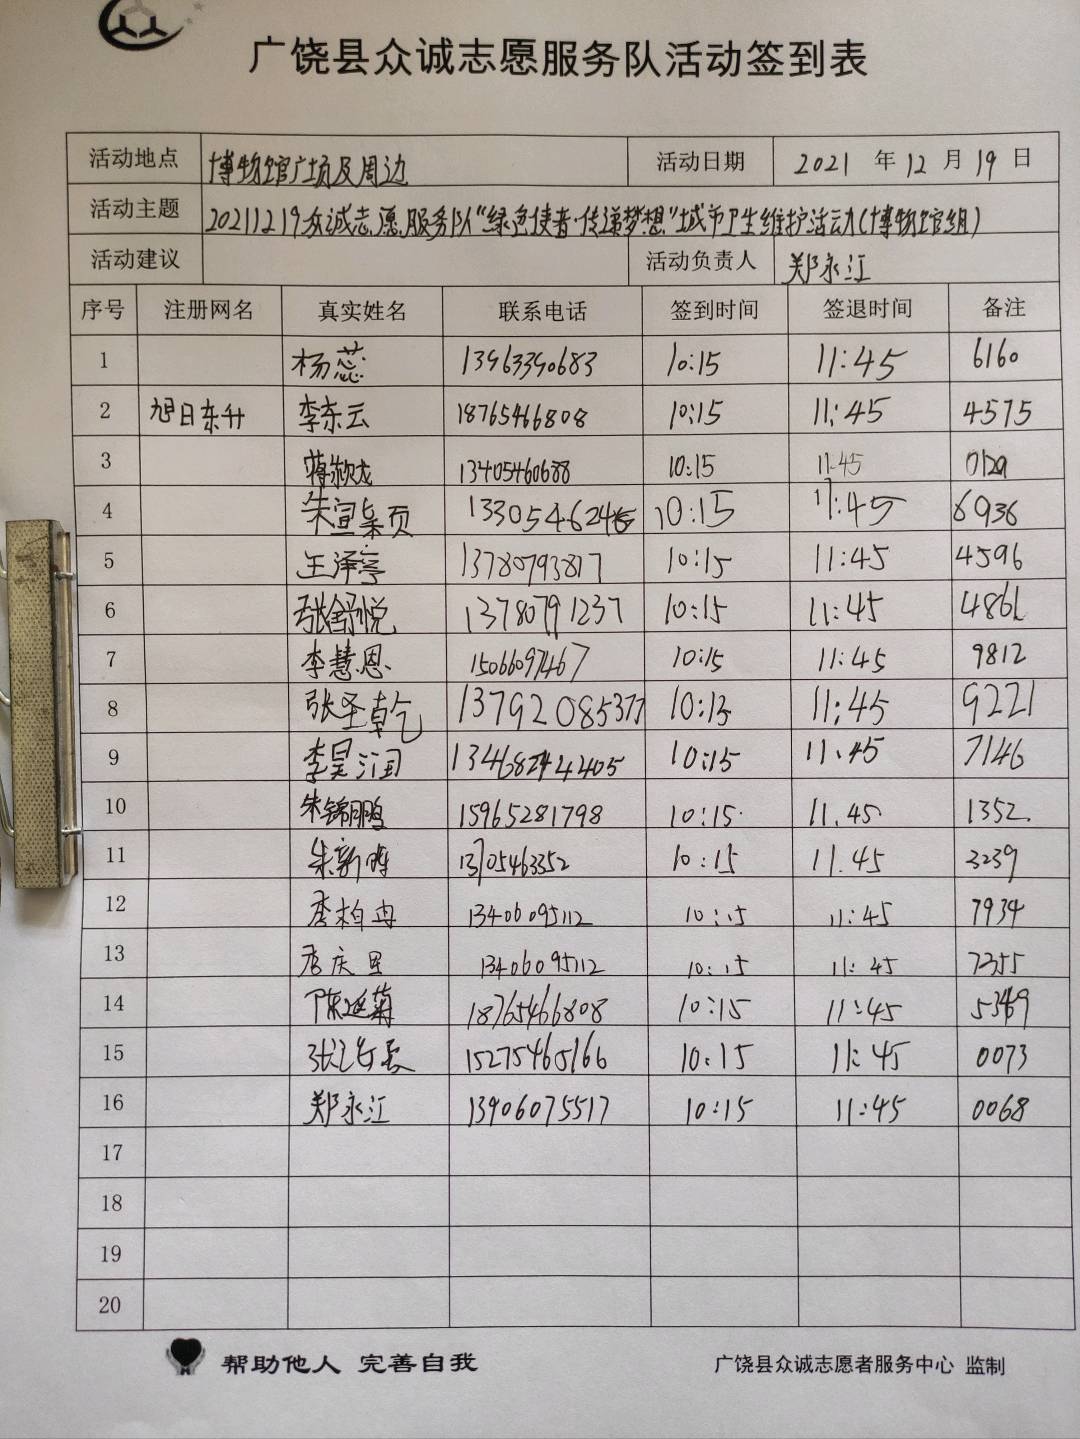 广饶县众诚志愿服务队活动签到表
活动地点 博物馆广场及周边 活动日期 2021 年 12 月 19 日
活动主题 20211219众诚志愿服务队“绿色使者·传递梦想”城市卫生维护活动(博物馆组)
活动建议 活动负责人 郑永江
序号 注册网名 真实姓名 联系电话 签到时间 签退时间 备注
1 杨蕊 13963390683 10:15 11:45 6160
2 旭日东升 李东云 18765466808 10:15 11:45 4575
3 13405460688 10:15 11:45
4 10:15 11:45 6936
5 王泽亭 13780793817 10:15 11:45 4596
6 张舒悦 13780791237 10:15 11:45 4861
7 李慧恩 15066097467 10:15 11:45 9812
8 张圣乾 13792085377 10:15 11:45 9221
9 李昊润 10:15 11.45 7146
10 朱锦鹏 15965281798 10:15 11.45 1352
11 13705463352 10:15 11.45 3239
12 13406095112 10:15 11:45 7934
13 13406095112 10:15 11:45 7355
14 陈延菊 18765466808 10:15 11:45 5369
15 15275465166 10:15 11:45 0073
16 郑永江 13906075517 10:15 11:45 0068
17
18
19
20
帮助他人 完善自我 广饶县众诚志愿者服务中心 监制